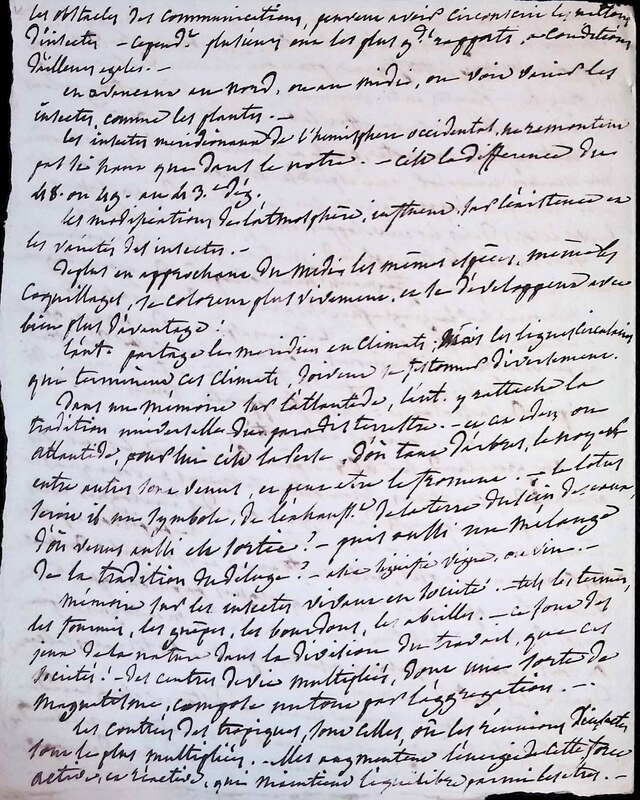 les obstacles des communications, peuvent avoir circonscrit les
d'insectes - cepend.t plusieurs ont les plus g.ds rapports, a conditions
d'ailleurs egales. -
en avancant au nord, ou au midi, on voit varier les
insectes, comme les plantes. -
les insectes meridionaux de l'hemisphere occidental, ne remontent
pas si haut que dans le notre. - c'est la difference du
48. ou 49. au 43.e deg.
les modifications de l'atmosphère, influent sur l'existence et
les varietés des insectes. -
Deplus en approchant du midi les mêmes espèces, même les
Coquillages, se colorent plus vivement, et se développent avec
bien plus d'avantage.
l'aut. partage les meridien en climats, mais les lignes circulaires
qui terminent ces climats, doivent se festonner diversement.
Dans un mémoire sur l'atlantide, l'aut. y rattache la
tradition universelle du paradis terrestre. - cet eden ou
atlantide, pour lui c'est la perse, d'où tant d'arbres, le noyer
entre autres sont venus, et peut etre le froment. - le lotus
seroit il un symbole, de l'echauff.t de la terre du sein des eaux
d'où venus aussi est sortie? - puis aussi un mélange
de la tradition du déluge? - signifie vigne, ou vin. -
Mémoire sur les insectes vivant en societé. - tels les termès,
les fourmis, les guêpes, les bourdons, les abeilles. - ce sont des
jeux de la nature dans la division du travail, que ces
societés! - des centres de vie multipliés, donc une sorte de
magnetisme, compose un tout par l'aggregation. -
les contrées des tropiques, sont celles, où les réunions d'insectes
sont le plus multipliées. - elles augmentent l'énergie de cette force
active, et réactive, qui maintient l'équilibre parmi les etres. -